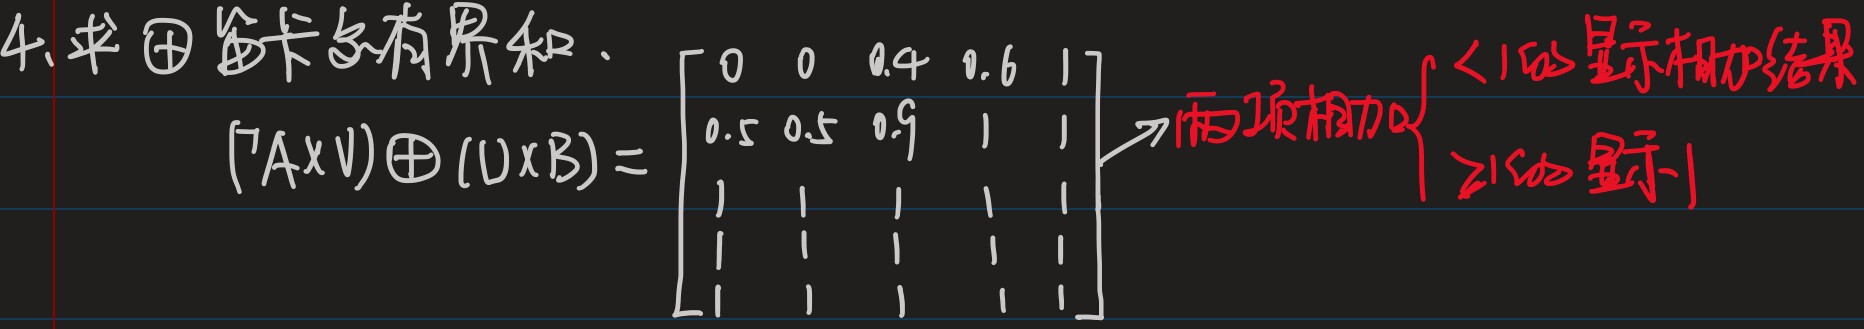 4、求⊕笛卡尔有界和.
(¬A×V)⊕(U×B)=
0 0 0.4 0.6 1
0.5 0.5 0.9 1 1
1 1 1 1 1
1 1 1 1 1
1 1 1 1 1
两项相加
<1 显示相加结果
≥1 显示1